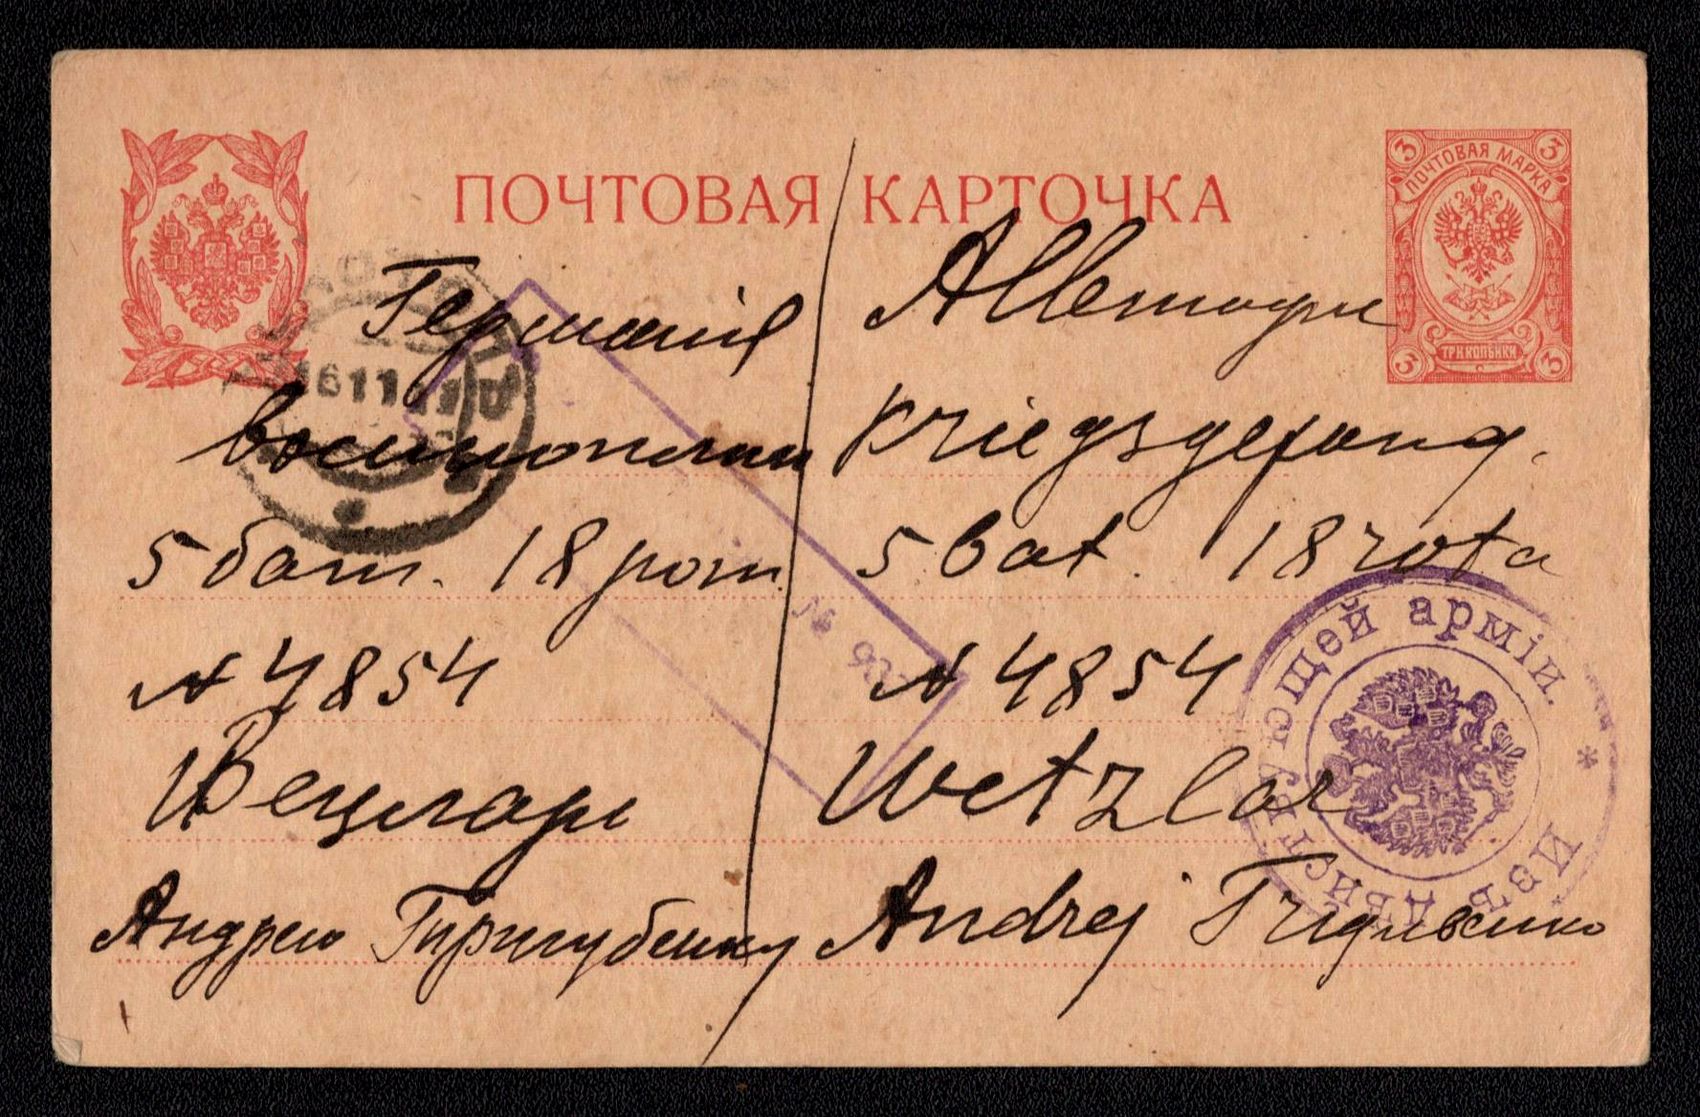 ПОЧТОВАЯ КАРТОЧКА
3 ПОЧТОВАЯ МАРКА 3
3 ТРИ КОПѢЙКИ 3
Германія
военнопленн
5 бат. 18 рот.
№ 4854
Вецларъ
Андрею
Allemagne
Kriegsgefang.
5 bat. 18 rota
№ 4854
Wetzlar
Andrej
№
Изъ дѣйствующей арміи. *